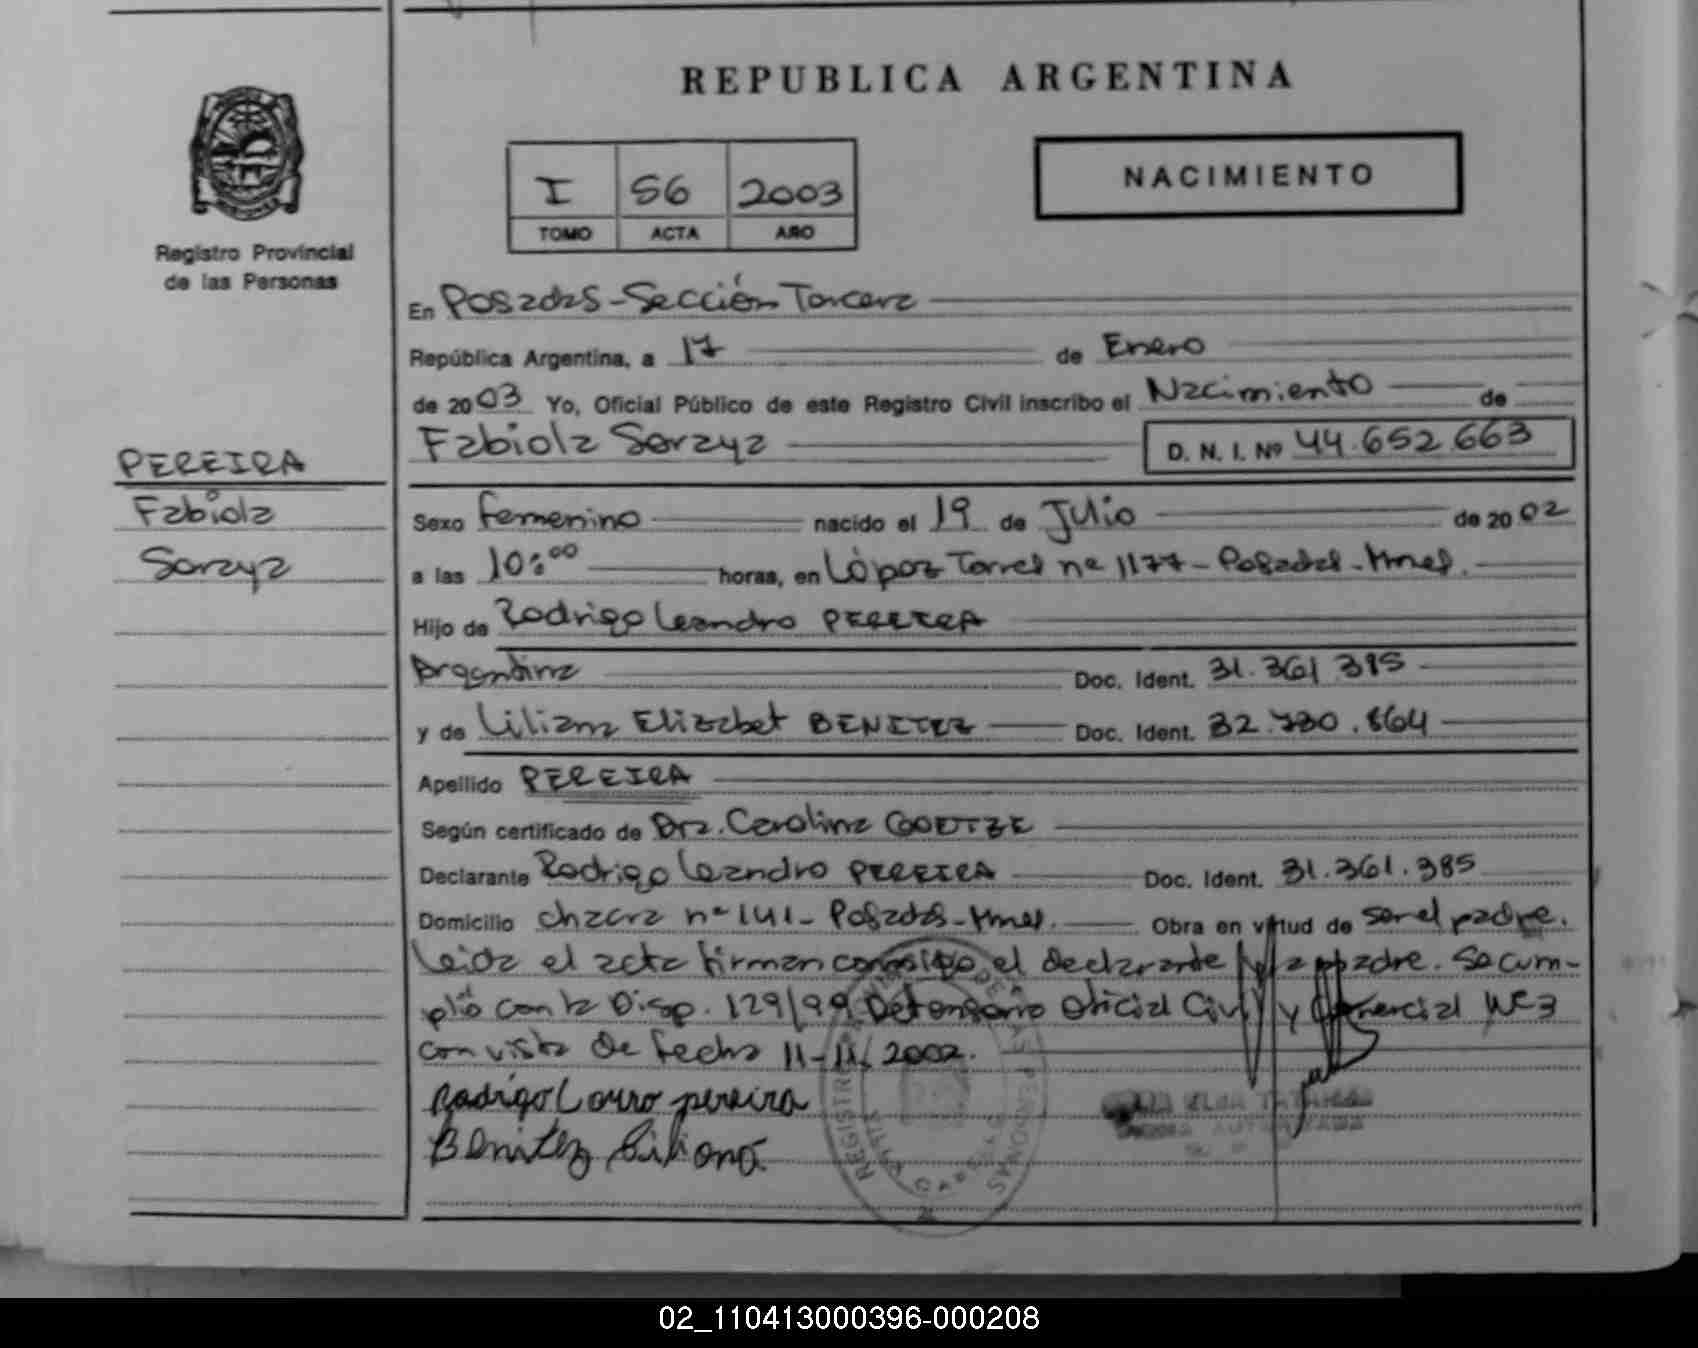 REPUBLICA ARGENTINA
NACIMIENTO
I 56 2003
TOMO ACTA AÑO
Registro Provincial
de las Personas
En Posadas-Sección Tercera
República Argentina, a 17 de Enero
de 2003 Yo, Oficial Público de este Registro Civil inscribo el Nacimiento de
Fabiola Soraya D. N. I. Nº 44.652.663
PEREIRA
Fabiola
Soraya
Sexo femenino nacido el 19 de Julio de 2002
a las 10:00 horas, en López Torres nº 1177-Posadas-Mnes.
Hijo de Rodrigo Leandro PEREIRA
Argentina Doc. Ident. 31.361.385
y de Liliana Elizabet BENITEZ Doc. Ident. 32.730.864
Apellido PEREIRA
Según certificado de Dra. Carolina GOETZE
Declarante Rodrigo Leandro PEREIRA Doc. Ident. 31.361.385
Domicilio chacra nº 141-Posadas-Mnes. Obra en virtud de ser el padre.
Leida el acta firman conmigo el declarante y la madre. Se cum-
plió con la Disp. 129/99 Defensoria Oficial Civil y Comercial Nº 3
con vista de fecha 11-11-2002.
Rodrigo pereira
Benitez Liliana
REGISTRO DE LAS PERSONAS
02_110413000396-000208